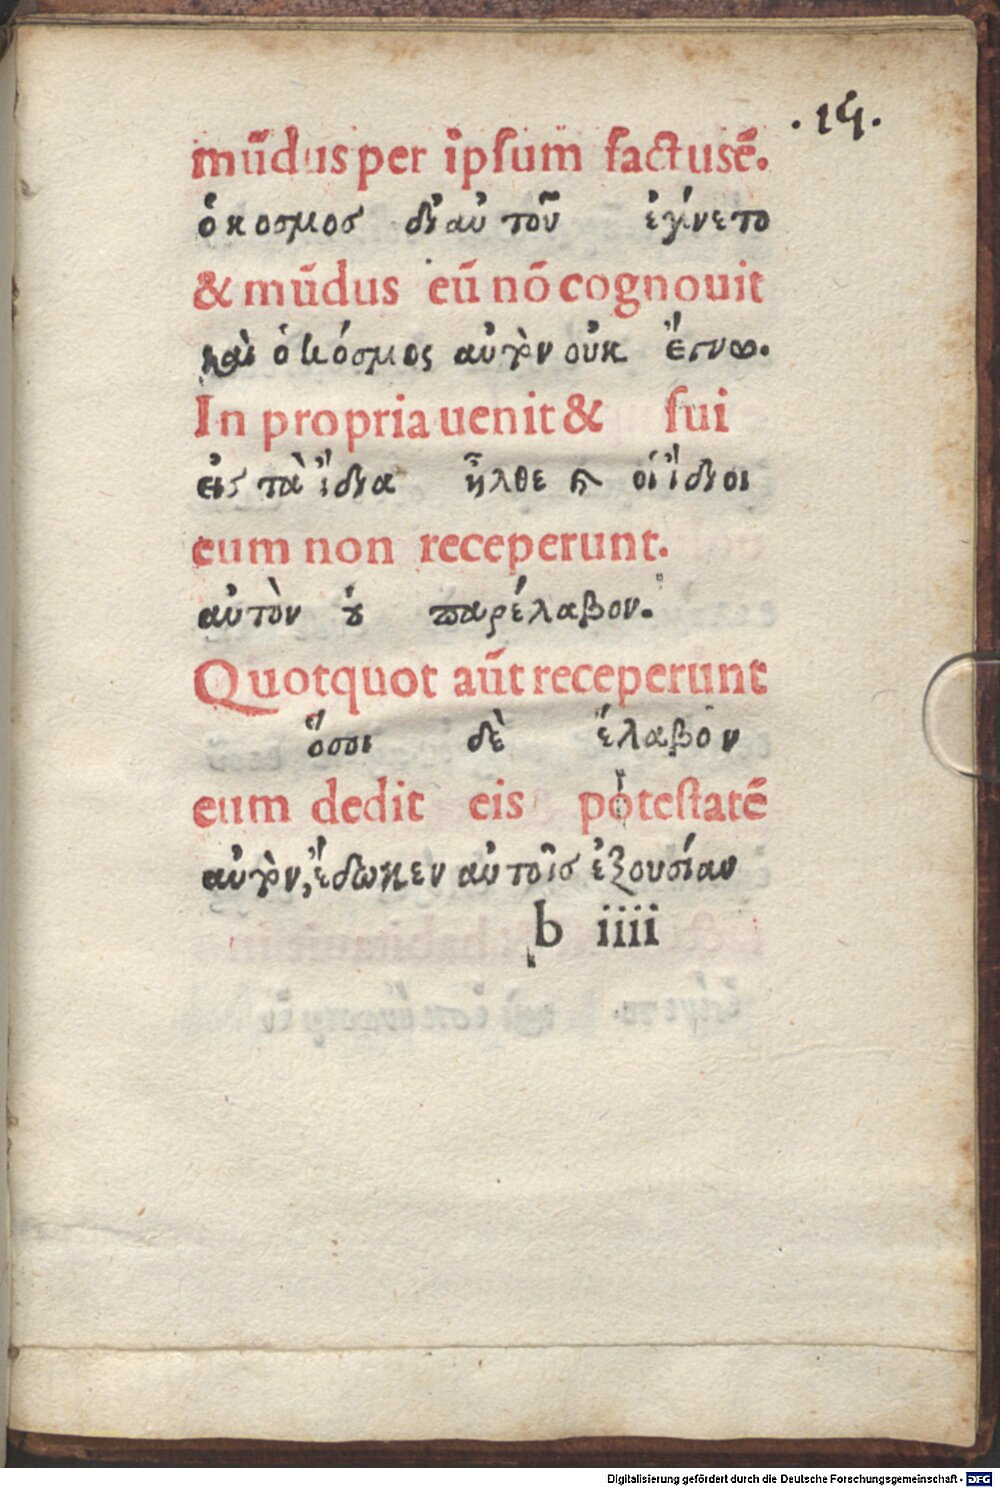 .14.
mũdus per ipsum factusẽ.
ὁ κοσμοσ δι αὐτοῦ ἐγίνετο
& mũdus eũ nõ cognouit
καὶ ὁ κόσμος αὐτὸν οὐκ ἔγνω.
In propria uenit & sui
εἰς τὰ ἴδια ἦλθε ϗ οἱ ἴδιοι
eum non receperunt.
αὐτὸν ȣ̓ παρέλαβον.
Quotquot aũt receperunt
ὅσοι δὲ ἔλαβον
eum dedit eis potestatẽ
αὐτὸν, ἔδωκεν αὐτοῖσ ἐξουσίαν
b iiii
Digitalisierung gefördert durch die Deutsche Forschungsgemeinschaft - DFG